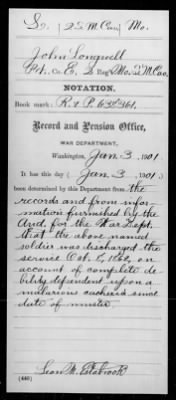 S. | 2 S. M. Cav. | Mo.
John Longwell
Pvt., Co. E, 2 Reg't Mo. S. M. Cav.
NOTATION.
Book mark: R. & P. 632361.
Record and Pension Office,
WAR DEPARTMENT,
Washington, Jan. 3, 1901.
It has this day (Jan. 3, 1901.)
been determined by this Department from the
records and from infor-
mation furnished by the
Aud. for the War Dept.
that the above named
soldier was discharged the
service Oct. 1862, on
account of complete de-
bility dependent upon a
malarious cachexia since
date of muster.
Leon M. Estabrook
(440)